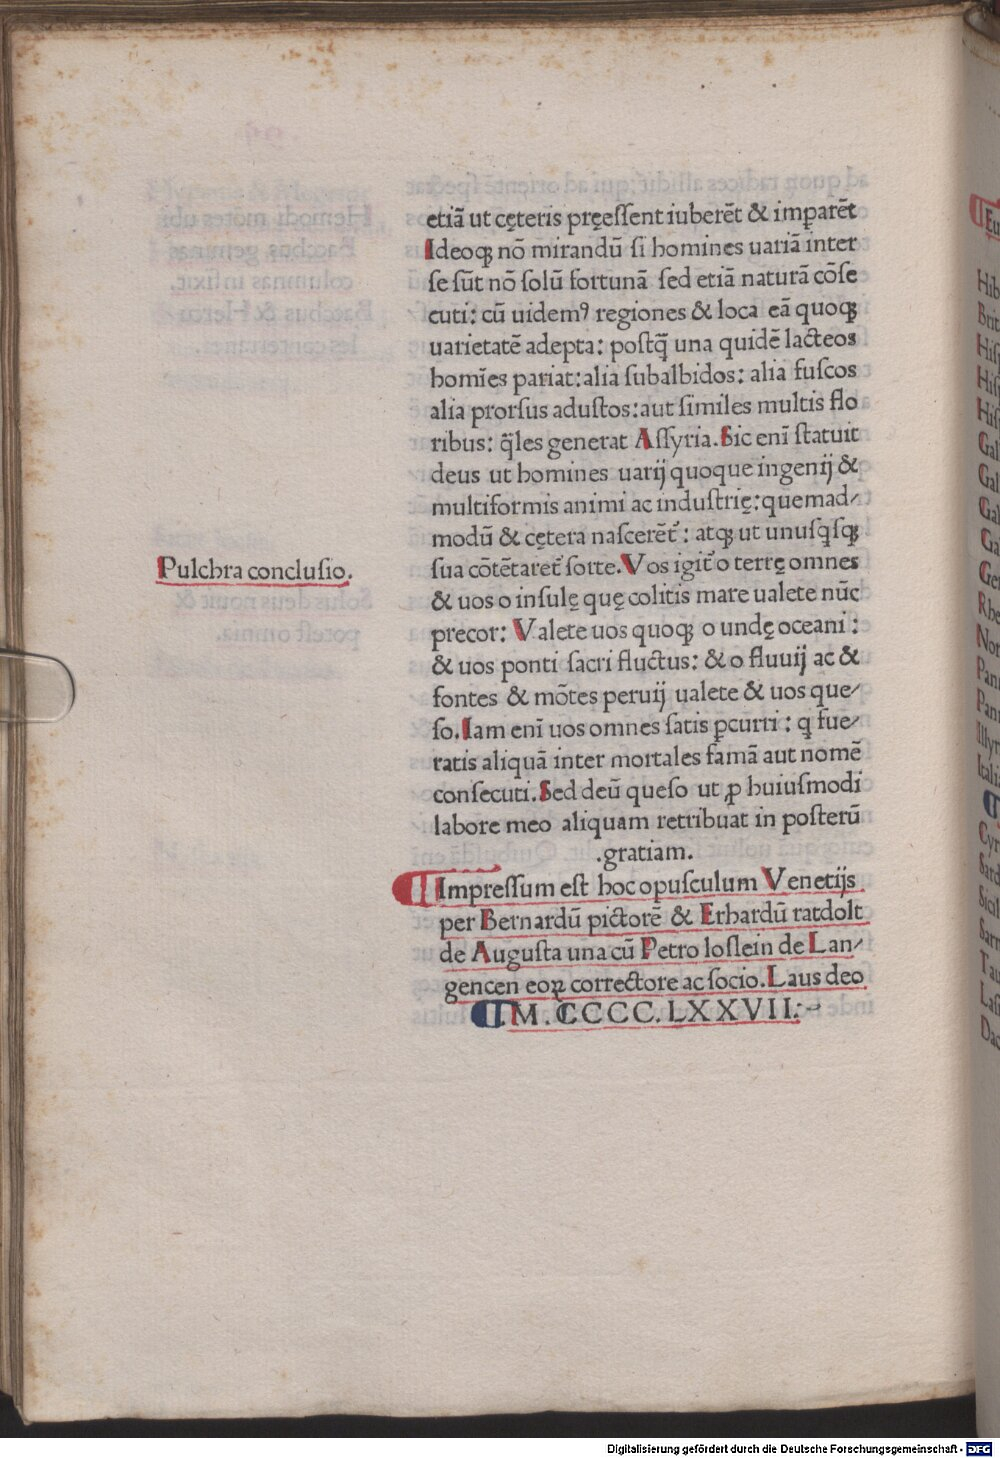 etiā ut cęteris pręeſſent iuberēt & imꝑarēt
Ideoqꝫ nō mirandū ſi homines uariā inter
ſe ſūt nō ſolū fortunā ſed etiā naturā cōſe
cuti: cū uidemꝰ regiones & loca eā quoqꝫ
uarietatē adepta: poſtq̄ una quidē lacteos
homīes pariat: alia ſubalbidos: alia fuſcos
alia prorſus aduſtos: aut ſimiles multis flo
ribus: q̄les generat Aſſyria. Sic enī ſtatuit
deus ut homines uarij quoque ingenij &
multiformis animi ac induſtrię: quemad⸗
modū & cętera naſcerēt᷑: atqꝫ ut unuſqſqꝫ
Pulchra concluſio.
ſua cōtētaret᷑ ſorte. Vos igit᷑ o terrę omnes
& uos o inſulę quę colitis mare ualete nūc
precor: Valete uos quoqꝫ o undę oceani:
& uos ponti ſacri fluctus: & o fluuij ac &
fontes & mōtes peruij ualete & uos que⸗
ſo. Iam enī uos omnes ſatis ꝑcurri: q fue⸗
ratis aliquā inter mortales famā aut nomē
conſecuti. Sed deū queſo ut ꝓ huiuſmodi
labore meo aliquam retribuat in poſterū
.gratiam.
Impreſſum eſt hoc opuſculum Venetijs
per Bernardū pictorē & Erhardū ratdolt
de Auguſta una cū Petro loſlein de Lan⸗
gencen eoꝝ correctore ac ſocio. Laus deo
.M.CCCC.LXXVII:~
Hib
Brit
Hiſ
Hiſ
Hiſ
Gal
Gal
Ga
Ga
Ge
Rhe
Nor
Pan
Pan
Illyr
Itali
Cyr
Sard
Sicil
Sarr
Tau
Laſ
Dac
Digitalisierung gefördert durch die Deutsche Forschungsgemeinschaft - DFG